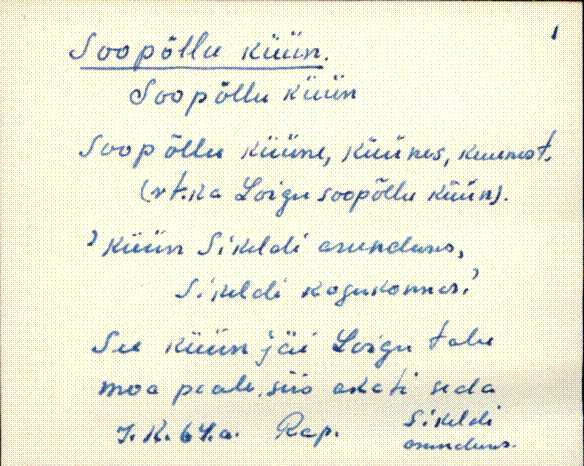 1
Soopõllu küün.
Soopõllu küün
Soopõllu küüne, küünes, kuunest.
(vt.ka Loigu soopõllu küün).
’küün Sikeldi asunduses,
Sikeldi kogukonnas.’
See küün jäi Loigu talu
moa peale, siis akati seda
J.K. 64.a. Rap. Sikeldi
asunduses.